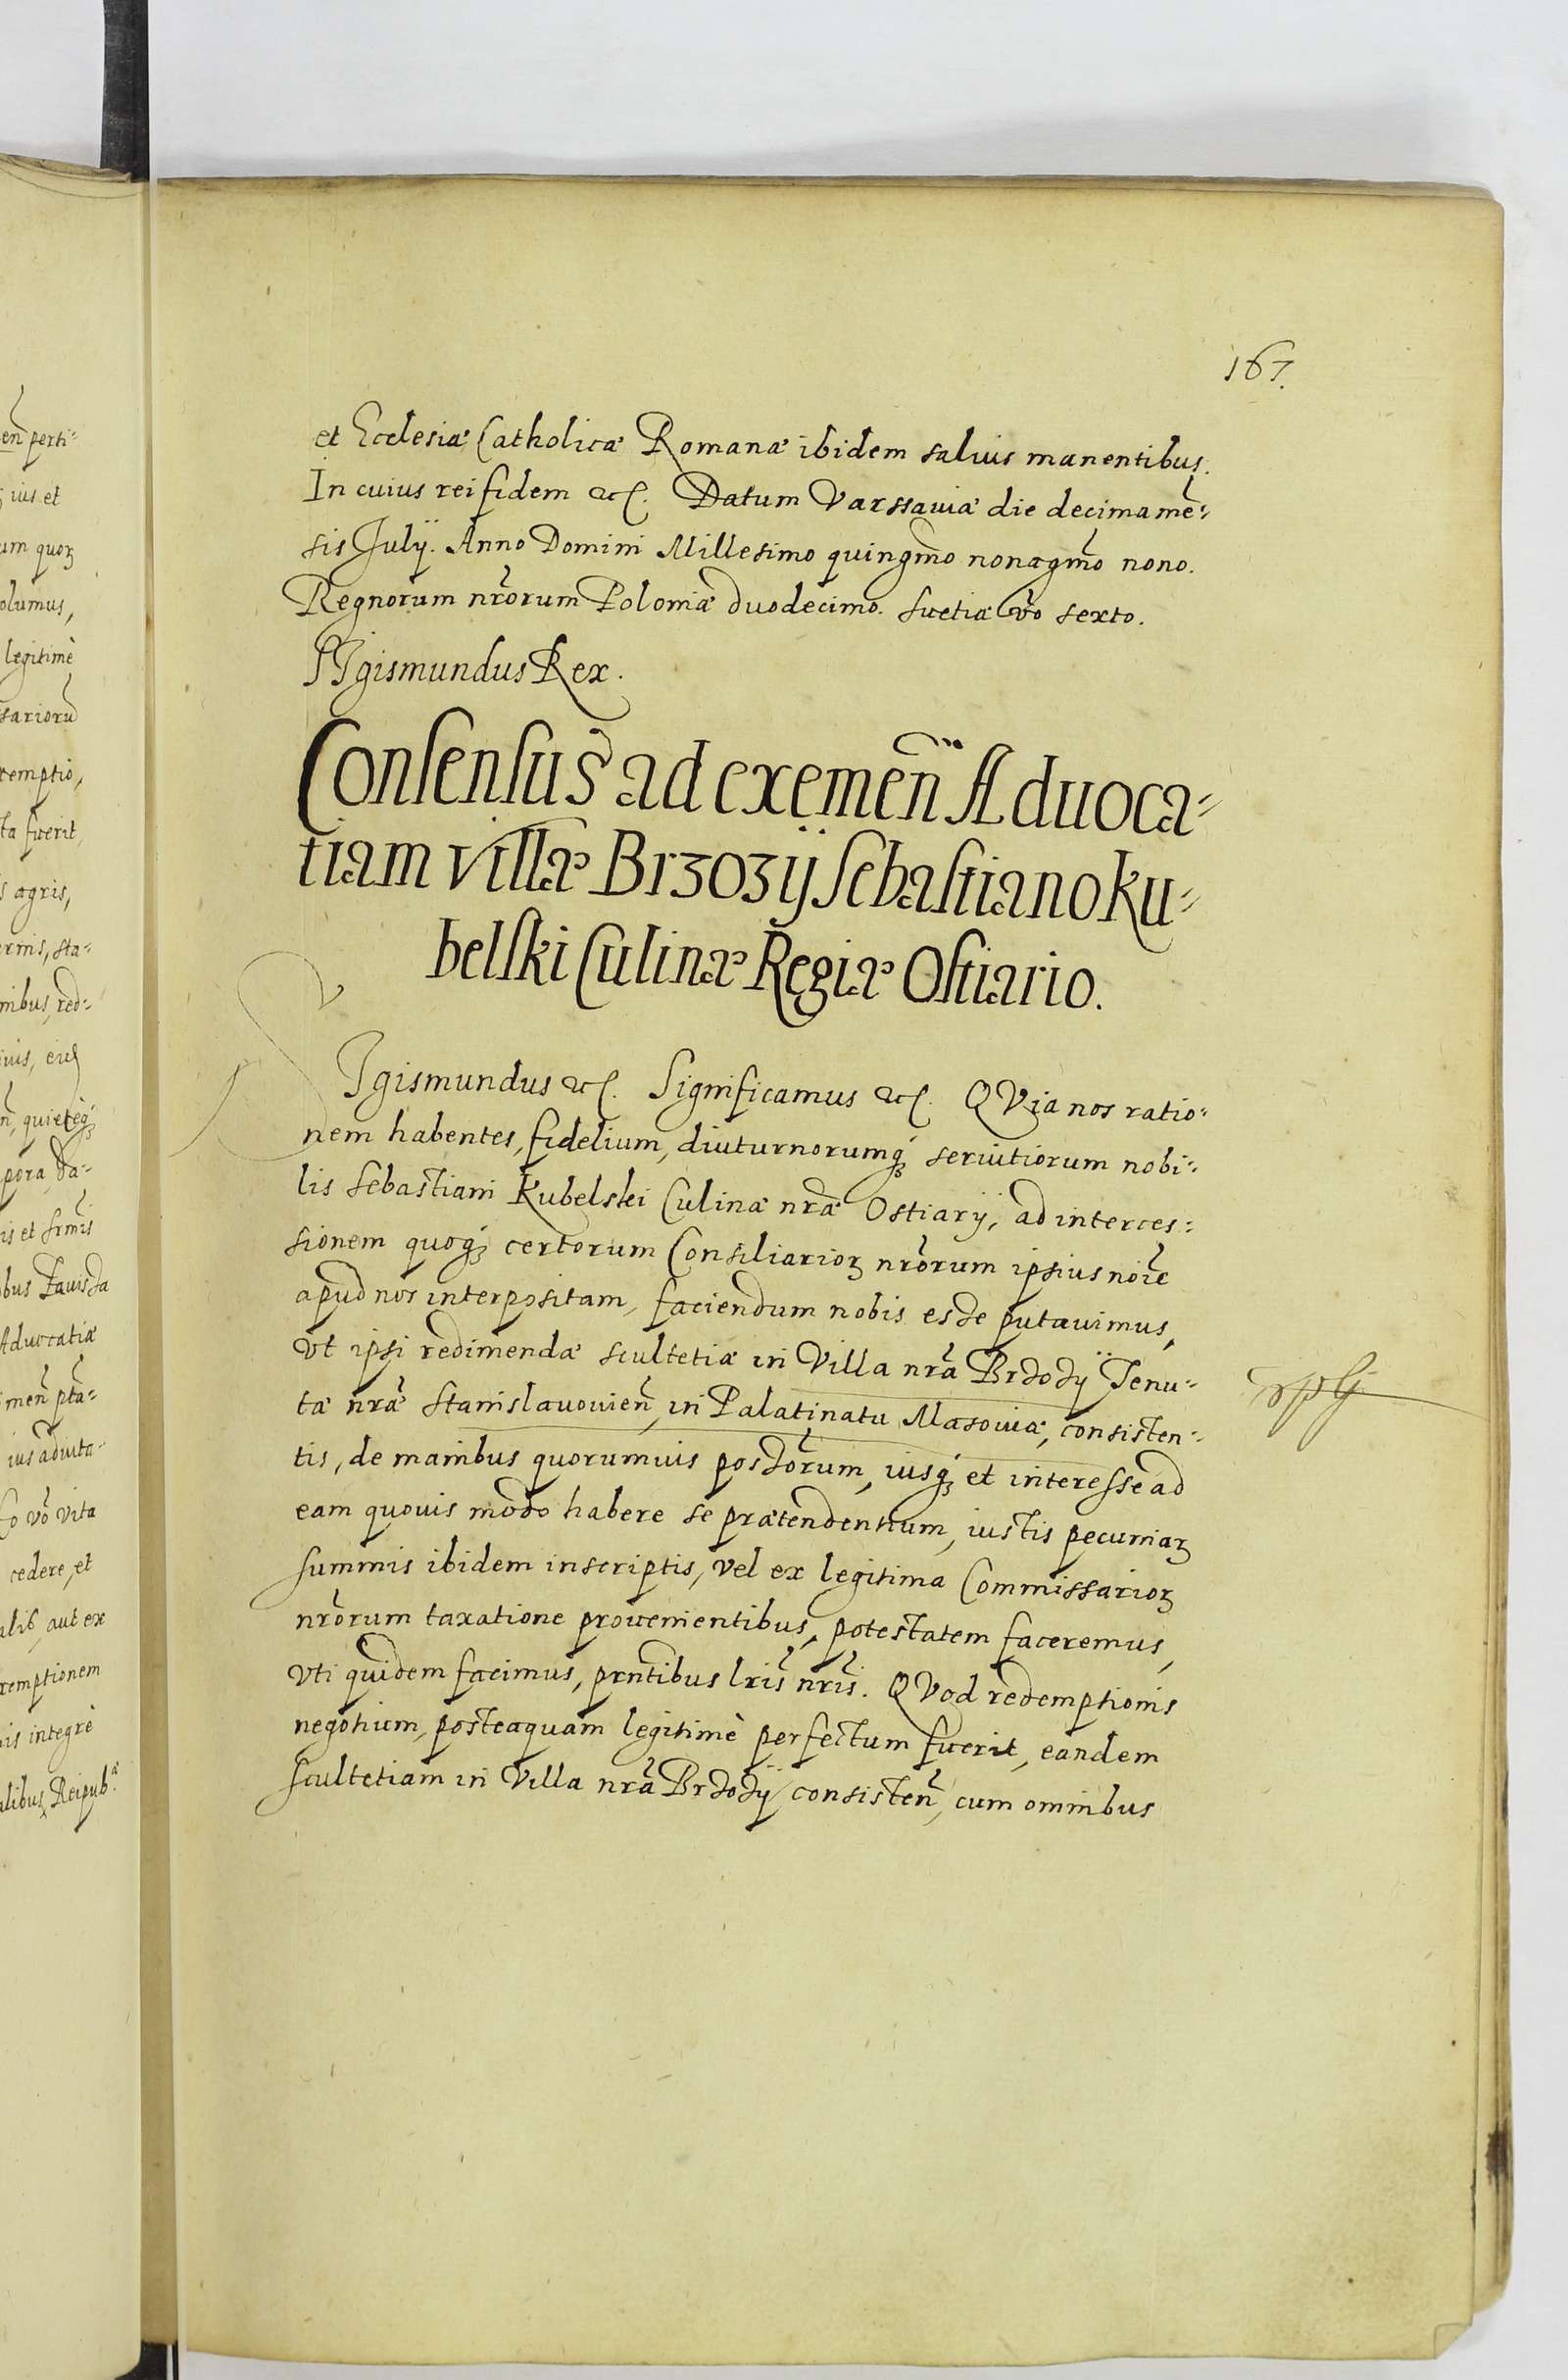 167.
et Ecclesiæ Catholicæ Romanæ ibidem saluis manentibus.
In cuius rei fidem etc. Datum Varssauiæ die decima mē-
sis Julÿ. Anno Domini Millesimo quingm̃o nonagm̃o nono.
Regnorum nr̃orum Poloniæ duodecimo. Suetiæ ṽo sexto.
SIgismundus Rex.
Consensus ad exemeñ Aduoca-
tiam villæ Brzozÿ Sebastiano Ku-
belski Culinæ Regiæ Ostiario.
SIgismundus etc. Significamus etc. QVia nos ratio-
nem habentes, fidelium, diuturnorumq́ʒ seruitiorum nobi-
lis Sebastiani Kubelski Culinæ nr̃æ Ostiarÿ, ad interces-
sionem quoq́ʒ certorum Consiliarioꝝ nr̃orum ipsius noĩe
apud nos interpositam, faciendum nobis esse putauimus,
vt ipsi redimendæ scultetiæ in Villa nr̃a Brzozÿ Tenu-
tæ nr̃æ Stanislauouieñ, in Palatinatu Masouiæ, consisten-
tis, de manibus quorumuis possõrum, iusq́ʒ et interesse ad
eam quouis modo habere se prætendentium, iustis pecuniaꝝ
summis ibidem inscriptis, vel ex legitima Commissarioꝝ
nr̃orum taxatione prouenientibus, potestatem faceremus,
vti quidem facimus, prñtibus lr̃is nr̃is. QVod redemptionis
negotium, posteaquam legitimè perfectum fuerit, eandem
scultetiam in Villa nr̃a Brzozÿ consisteñ, cum omnibus
eñ perti-
ius et
um quoꝝ
olumus,
legitimè
sariorũ
remptio,
ta fuerit
s agris,
ernis, sta-
nibus, red-
pora, da-
is et sim̃is
Aduocatiæ
ius aduita-
ṽo vita
cedere, et
aut ex
remptionem
is integrè
alibus Reipub.ᵃ